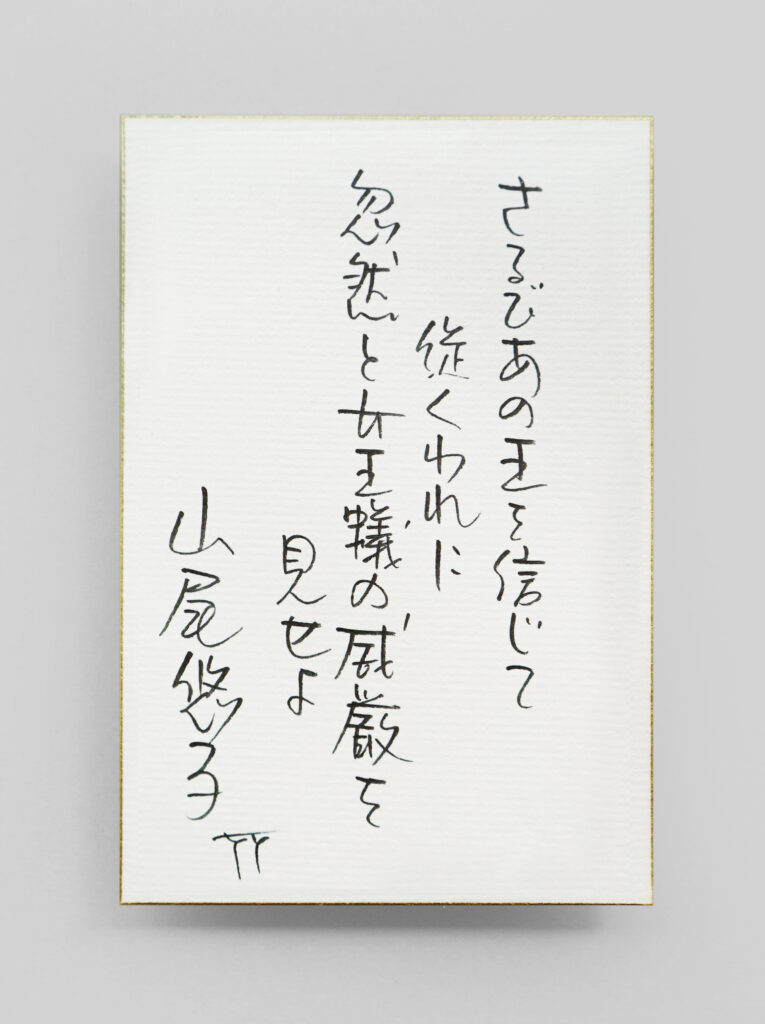 さるびあの王を信じて
従くわれに
忽然と女王蟻の威厳を
見せよ
山尾悠子